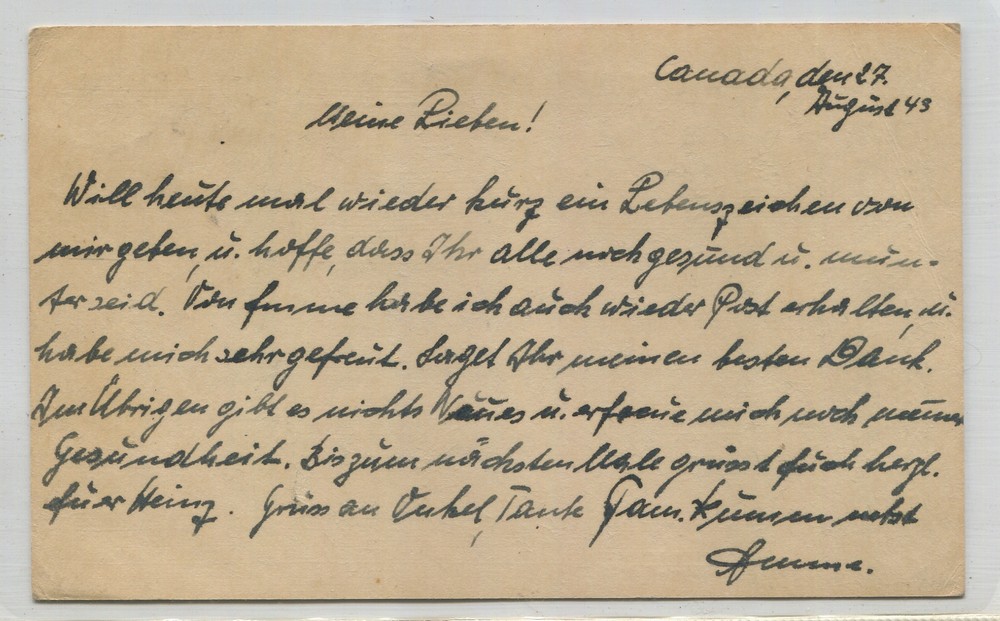 Canada, den 27.
August 43
Meine Lieben!
Will heute mal wieder kurz ein Lebenszeichen von
mir geben, u. hoffe, dass Ihr alle noch gesund u. mun-
ter seid. Von Emme habe ich auch wieder Post erhalten, u.
habe mich sehr gefreut. Saget Ihr meinen besten Dank.
Im Übrigen gibt es nichts Neues u. erfreue mich noch
Gesundheit. Bis zum nächsten Male grüsst Euch herzl.
Euer Heinz. Gruss an Onkel, Tante Fam. nebst
Emme.